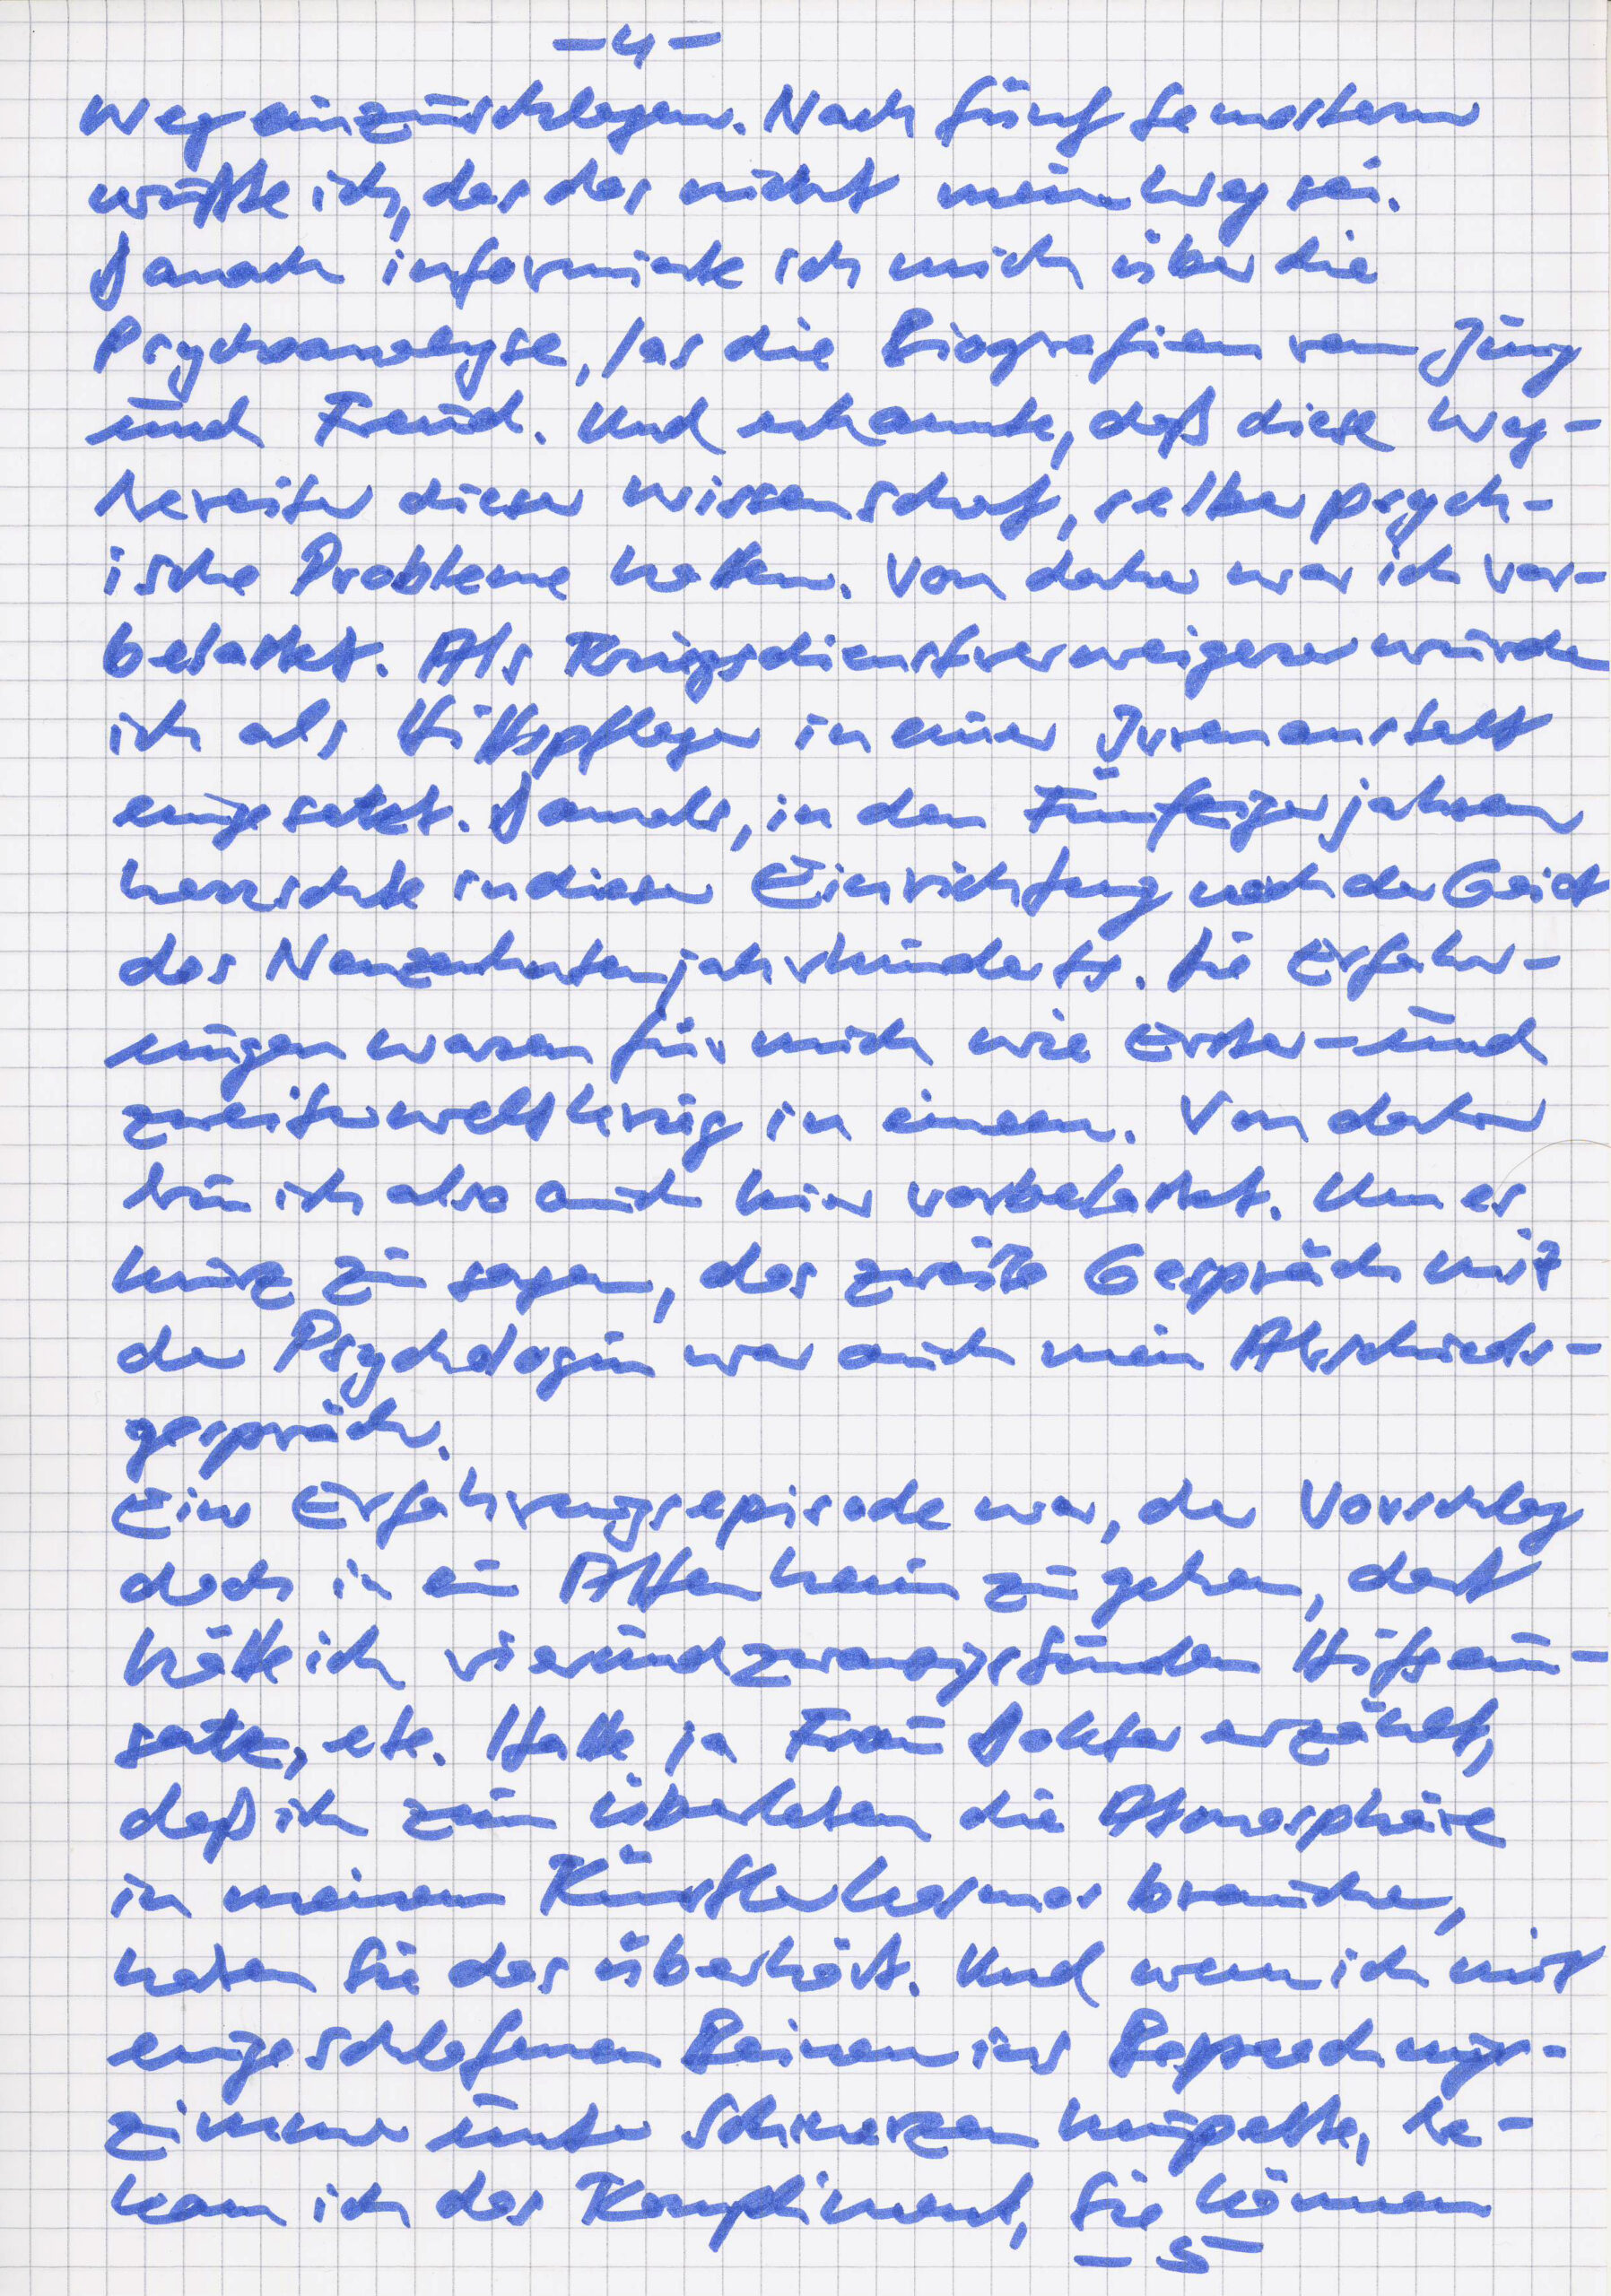 -4-
Weg einzuschlagen. Nach fünf Semestern
wußte ich, das das nicht mein Weg sei.
Danach informierte ich mich über die
Psychoanalyse, las die Biografien von Jung
und Freud. Und erkannte, daß diese Weg-
bereiter dieser Wissenschaft, selber psych-
ische Probleme hatten. Von daher war ich vor-
belastet. Als Kriegsdienstverweigerer wurde
ich als Hilfspfleger in einer Irrenanstalt
eingesetzt. Damals, in den Fünfzigerjahren
herrschte in dieser Einrichtung noch der Geist
des Neunzehntenjahrhunderts. Die Erfahr-
ungen waren für mich wie Erster- und
zweiter Weltkrieg in einem. Von daher
bin ich also auch hier vorbelastet. Um es
kurz zu sagen, das zweite Gespräch mit
der Psychologin war auch mein Abschieds-
gespräch.
Eine Erfahrungsepisode war, der Vorschlag
doch in ein Altenheim zu gehen, dort
hätte ich vierundzwanzigstunden Hilfsein-
satz, etc. Hatte ja Frau Doktor erzählt,
daß ich zum überleben die Atmosphäre
in meinem Künstlerkosmos brauche,
haben Sie das überhört. Und wenn ich mit
eingeschlafenen Beinen ins Besprechungs-
zimmer unter Schmerzen humpelte, be-
kam ich das Kompliment, Sie können
- 5 -